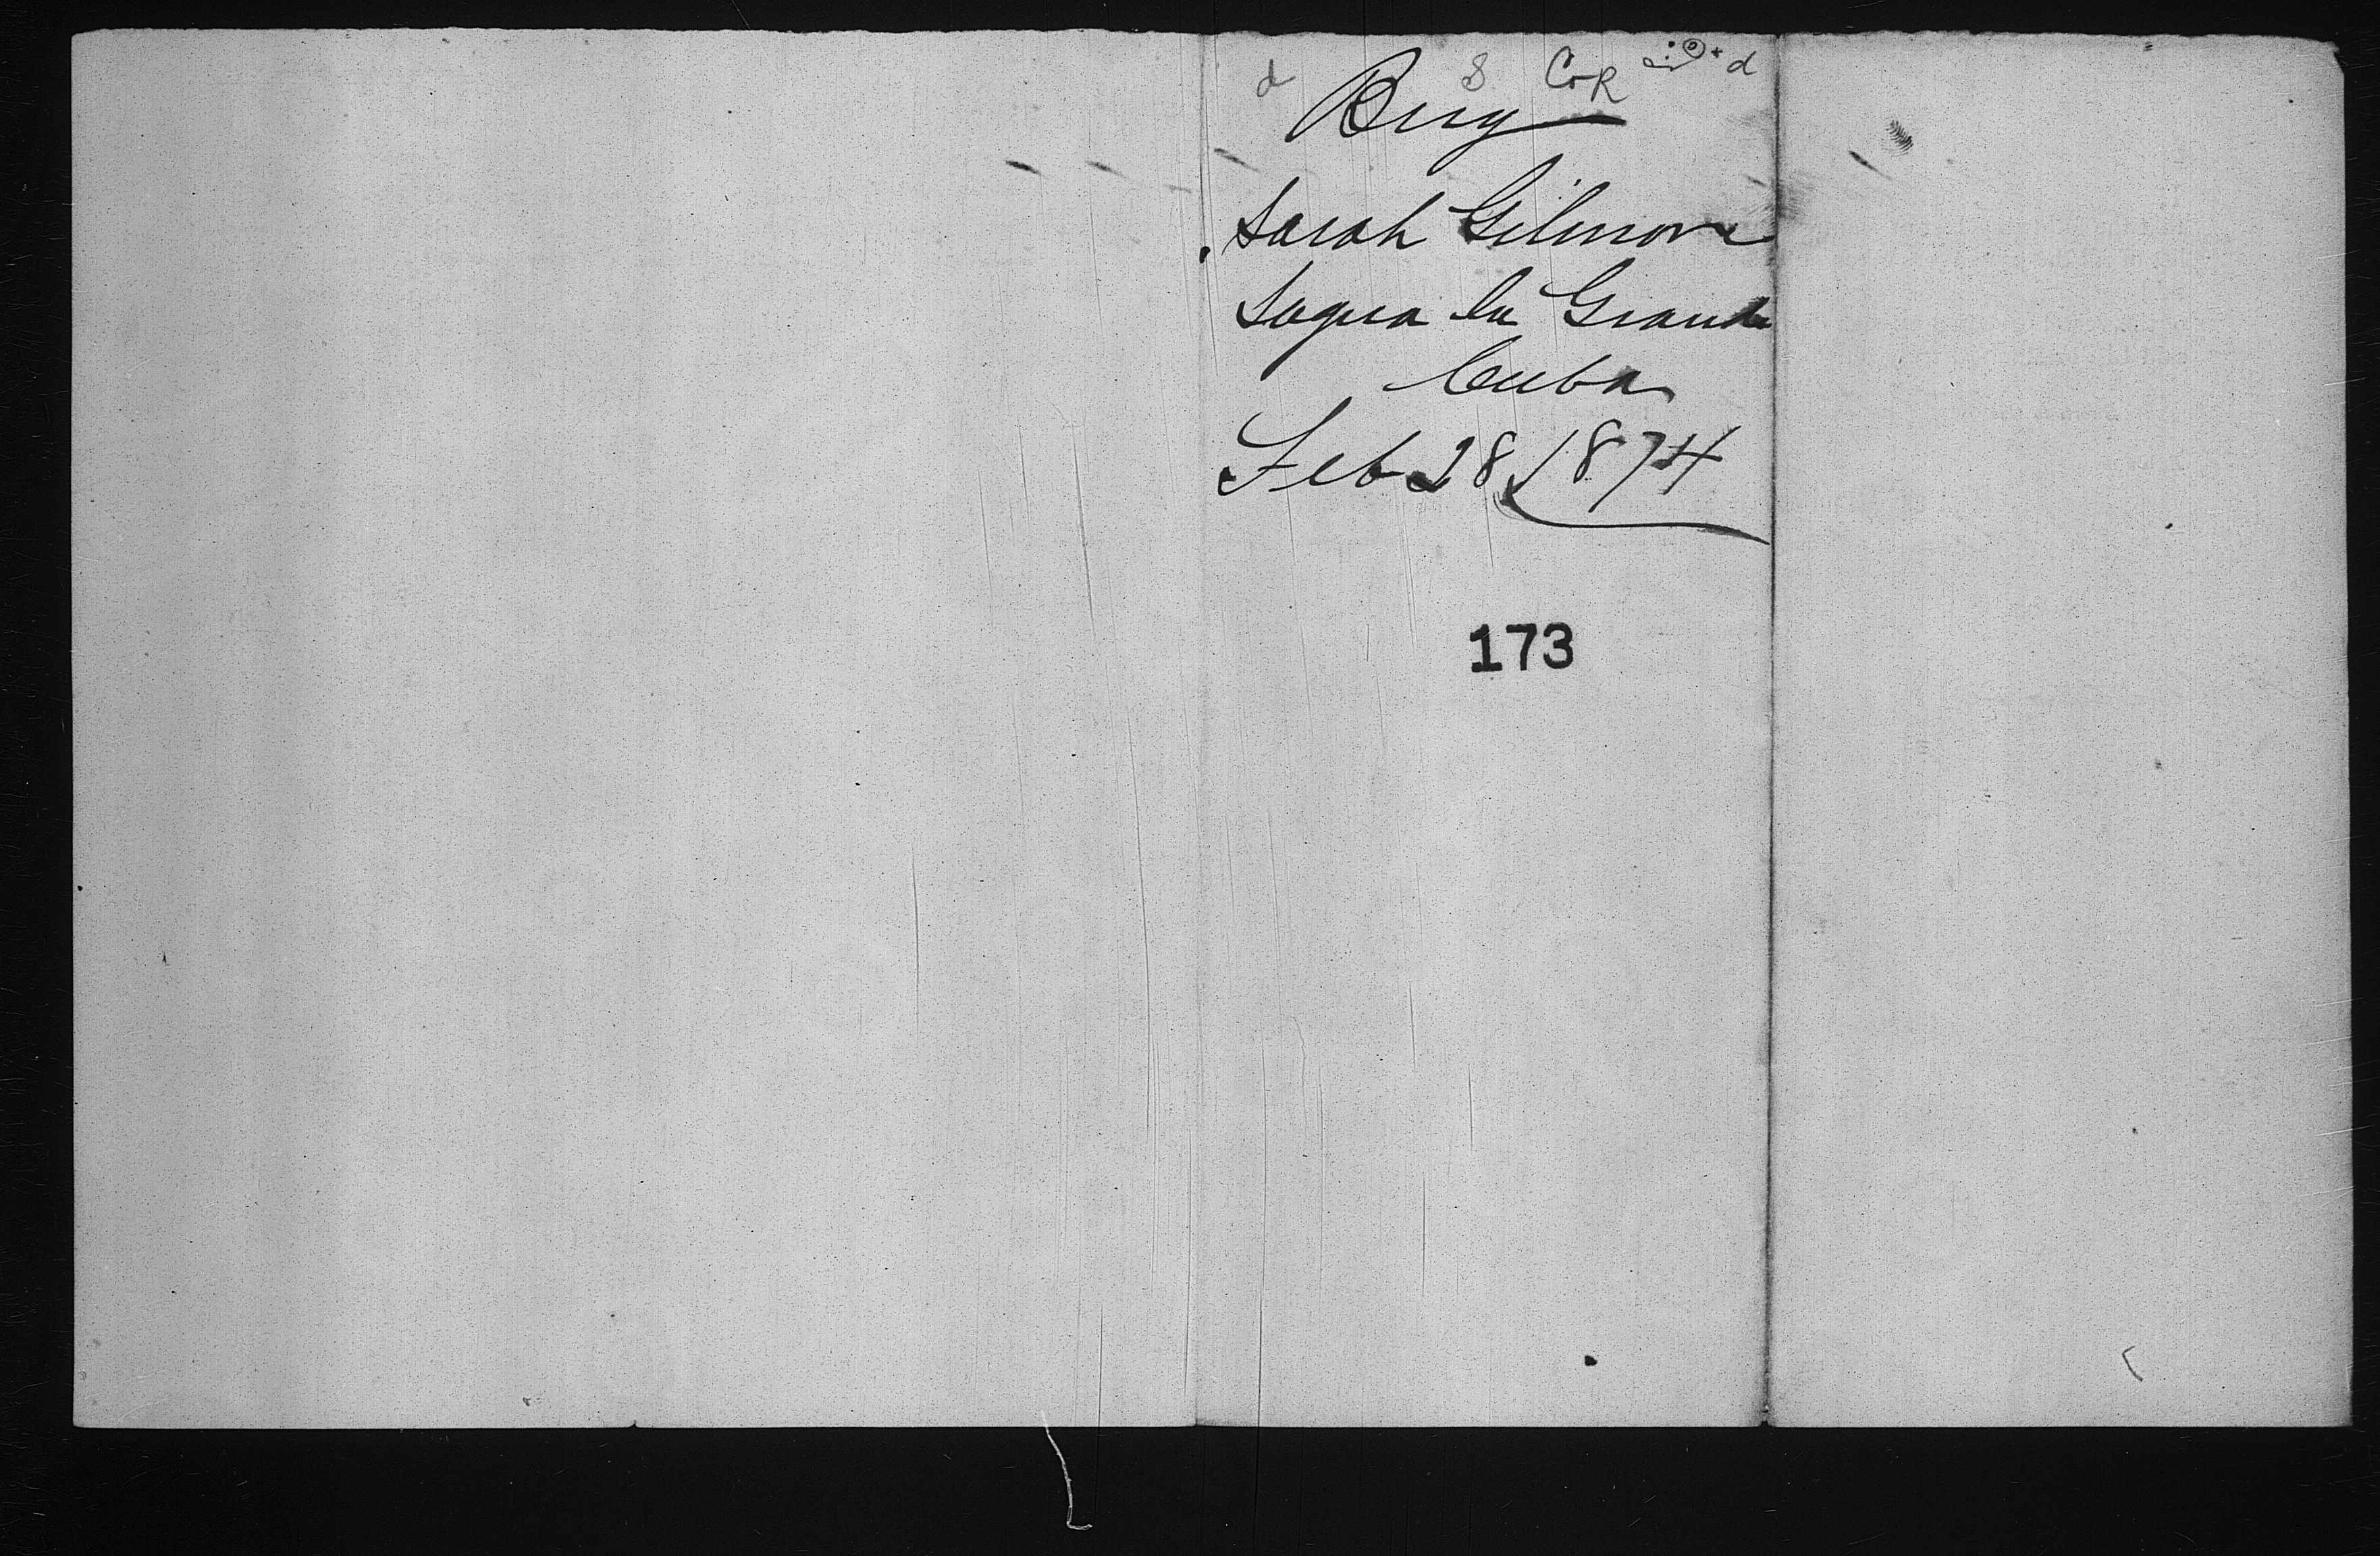 d S CoR d
Brig
Sarah Gilmore
Sagua la Grande
Cuba
Feb 28 1874
173